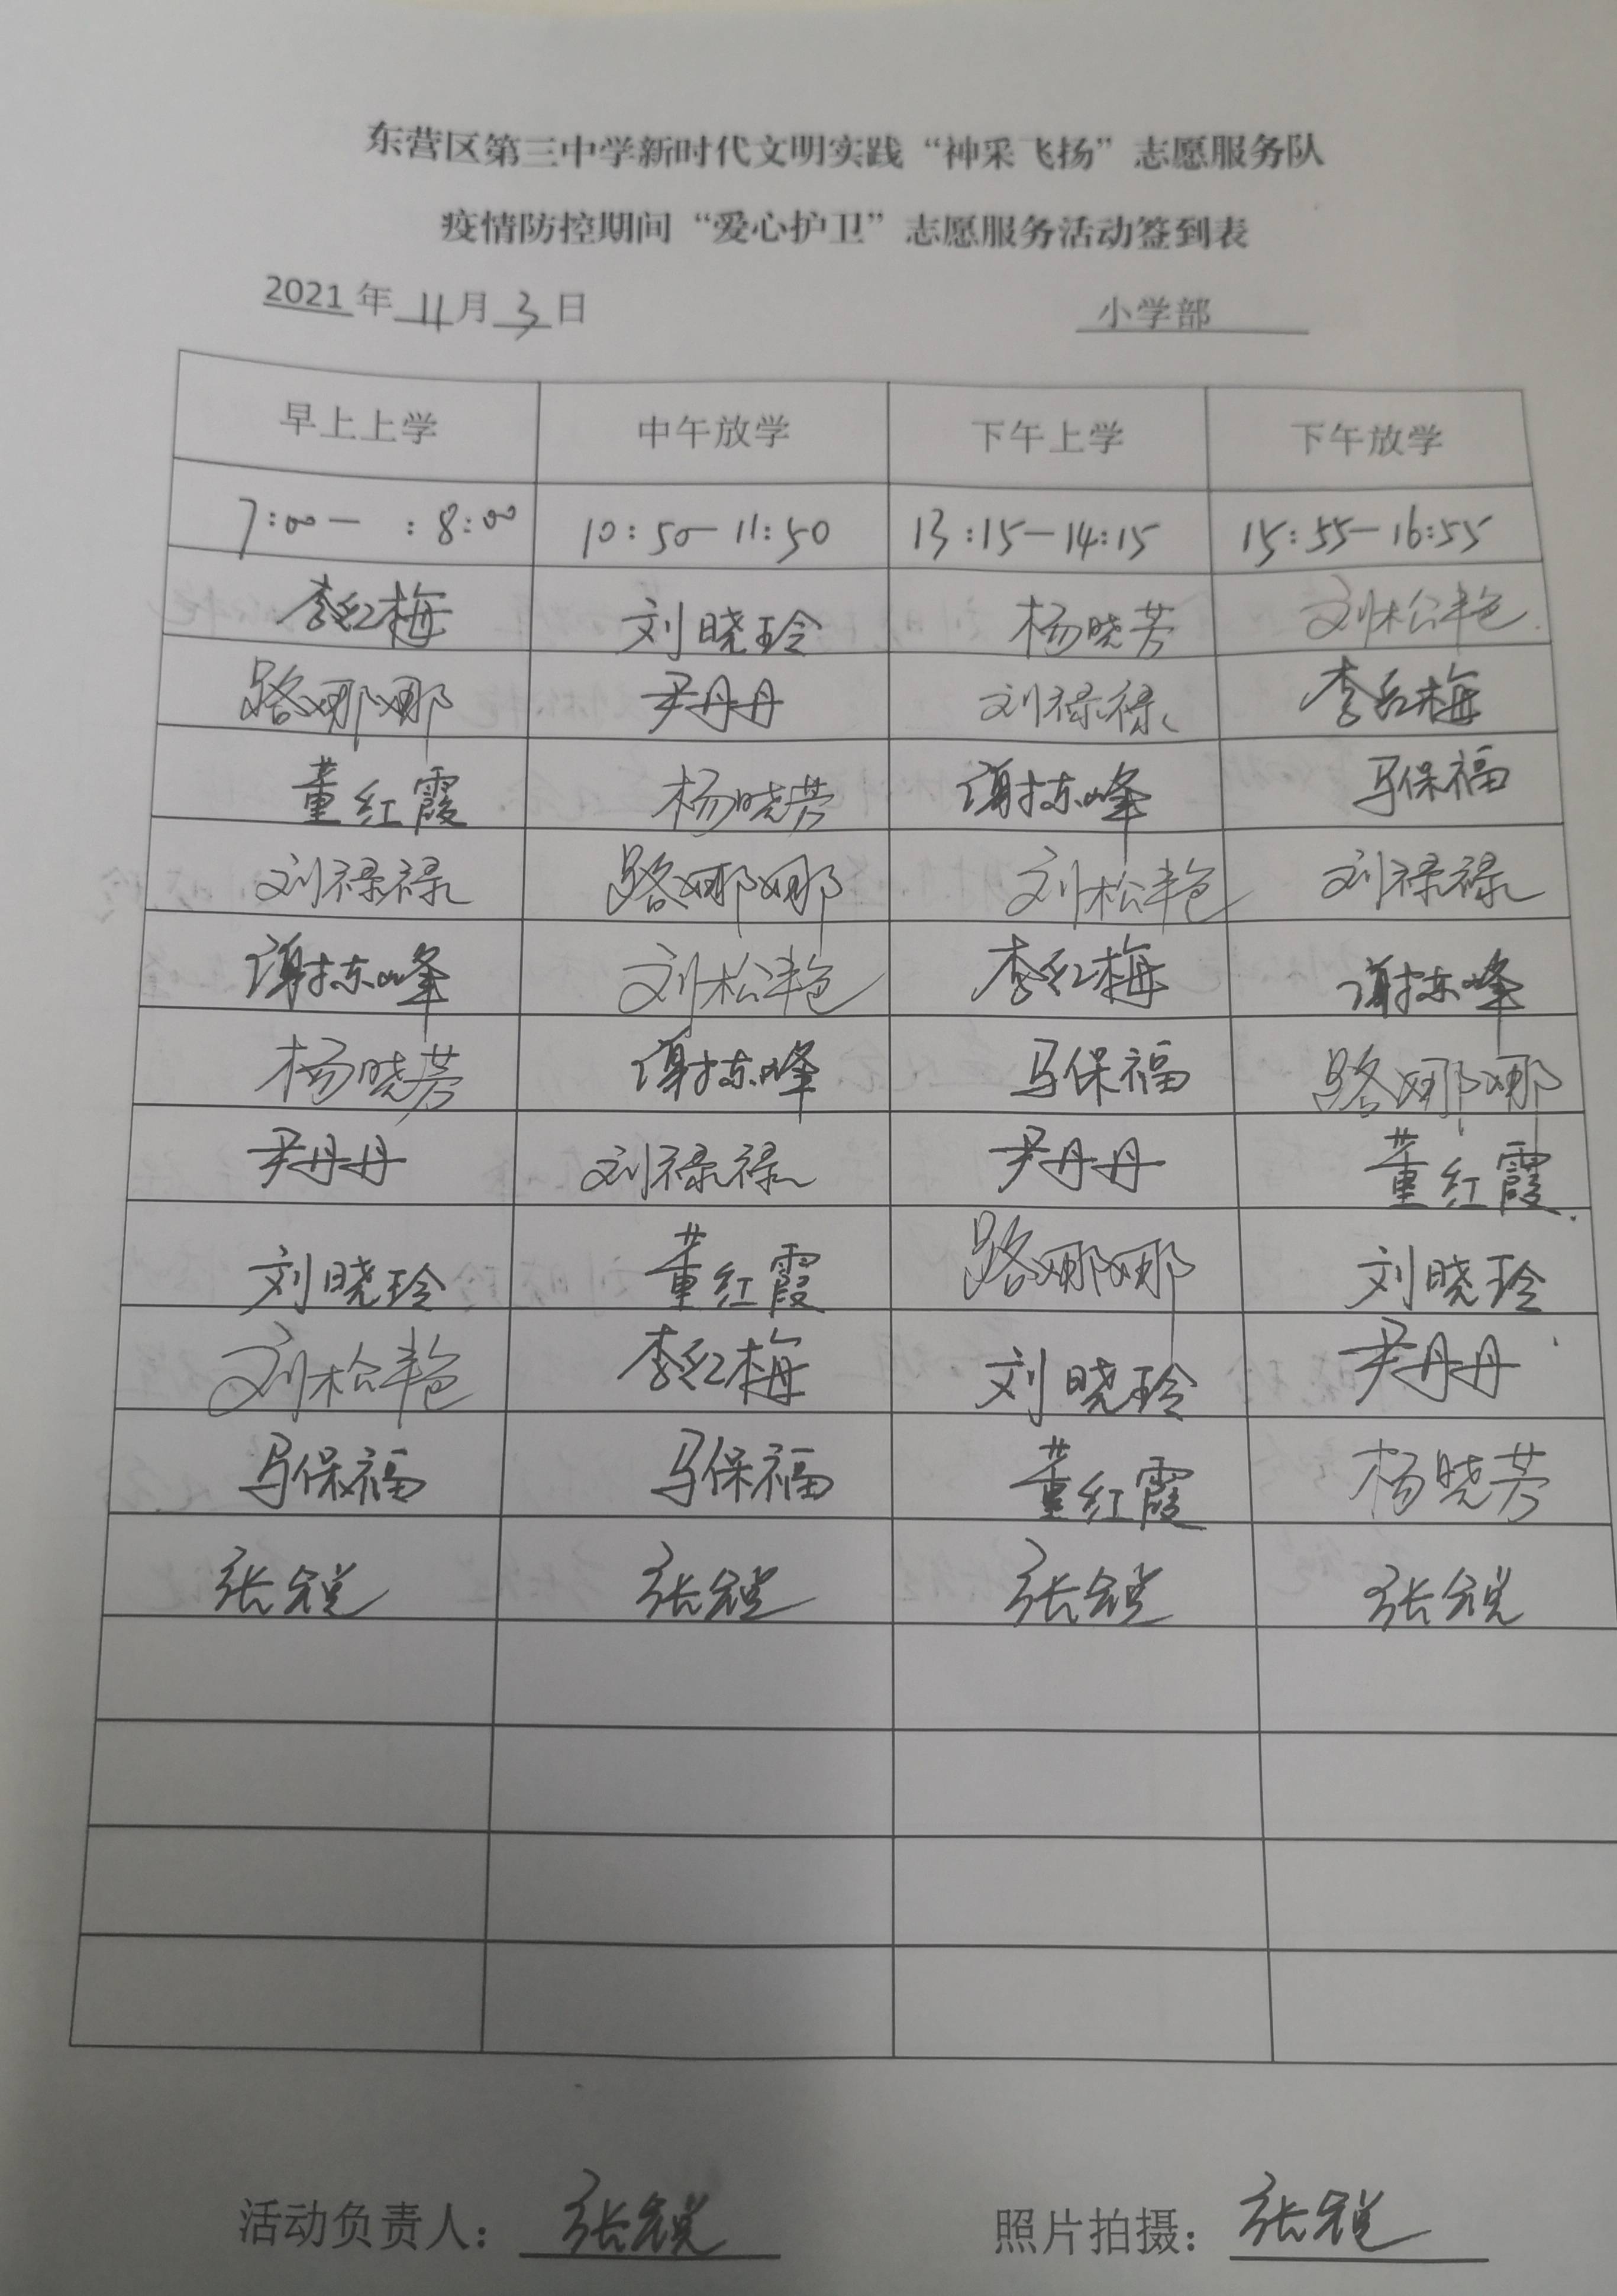 东营区第三中学新时代文明实践“神采飞扬”志愿服务队
疫情防控期间“爱心护卫”志愿服务活动签到表
2021年11月3日 小学部
早上上学 中午放学 下午上学 下午放学
7:00— :8:00 10:50-11:50 13:15-14:15 15:55-16:55
李红梅 刘晓玲 杨晓芳 刘松艳
路娜娜 尹丹丹 刘禄禄 李红梅
董红霞 杨晓芳 谢东峰 马保福
刘禄禄 路娜娜 刘松艳 刘禄禄
谢东峰 刘松艳 李红梅 谢东峰
杨晓芳 谢东峰 马保福 路娜娜
尹丹丹 刘禄禄 尹丹丹 董红霞
刘晓玲 董红霞 路娜娜 刘晓玲
刘松艳 李红梅 刘晓玲 尹丹丹
马保福 马保福 董红霞 杨晓芳
张锐 张锐 张锐 张锐
活动负责人：张锐 照片拍摄：张锐